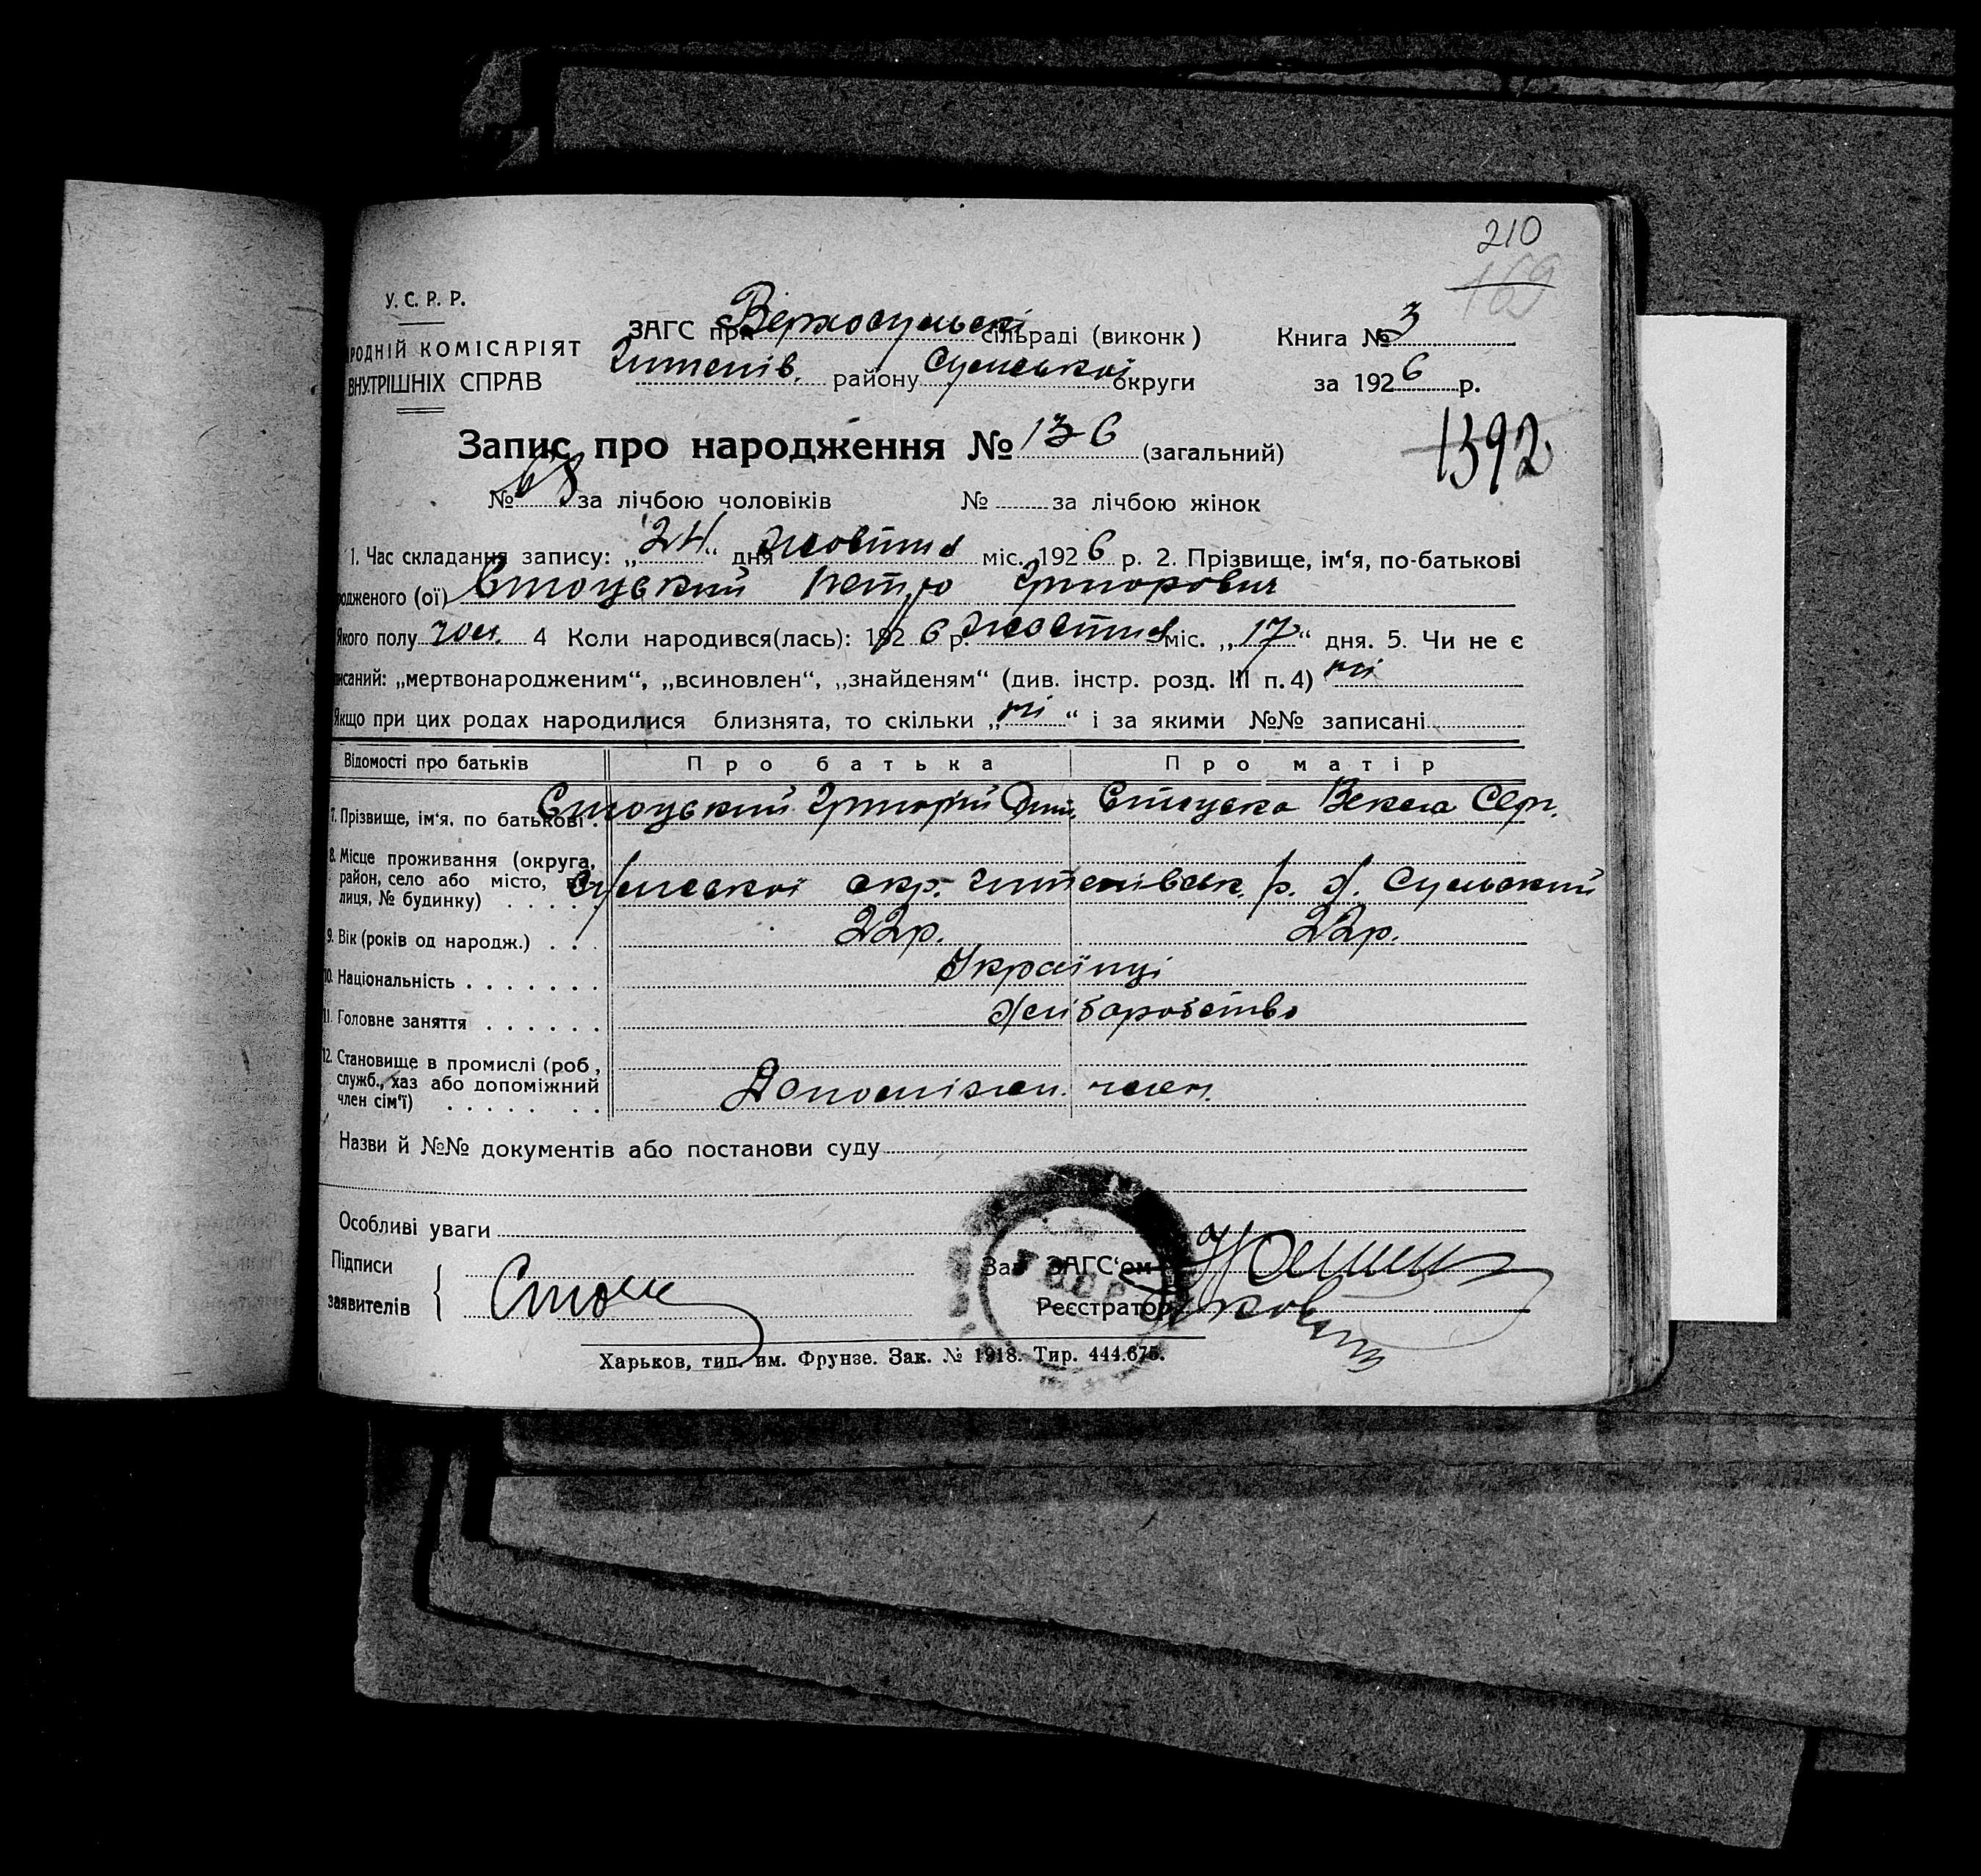 210
169
У. С. Р. Р.
РОДНІЙ КОМІСАРІЯТ
ВНУТРІШНІХ СПРАВ
ЗАГС при Верхосульскі сільраді (виконк)
Штепів. району Сумської округи
Книга № 3
за 1926 р.
Запис про народження № 136 (загальний)
1392
№ 68 за лічбою чоловіків № за лічбою жінок
1. Час складання запису: „24“ дня жовтня міс. 1926 р. 2. Прізвище, ім‘я, по-батькові
родженого (ої) Стоцький Петро Григорович
Якого полу чол. 4 Коли народився(лась): 1926 р. жовтня міс. „17“ дня. 5. Чи не є
писаний: „мертвонародженим“, „всиновлен“, „знайденям“ (див. інстр. розд. III п. 4) ні
Якщо при цих родах народилися близнята, то скільки „ні“ і за якими №№ записані
Відомості про батьків Про батька Про матір
7. Прізвище, ім‘я, по батькові. Стоцький Григорій Дми. Стоцька Векла Серг.
8. Місце проживання (округа,
район, село або місто, ву-
лиця, № будинку) Сумської окр. Штепівськ. р. х. Сульский
9. Вік (років од народж.) 22р. 22р.
10. Національність Українці
11. Головне заняття Хліборобство
12. Становище в промислі (роб,
служб., хаз або допоміжний
член сім‘ї) Допоміжн. член.
Назви й №№ документів або постанови суду
Особливі уваги
Підписи
заявителів
Зав ЗАГС‘ом
Реєстратор
Харьков, тип. им. Фрунзе. Зак. № 1918. Тир. 444.675.